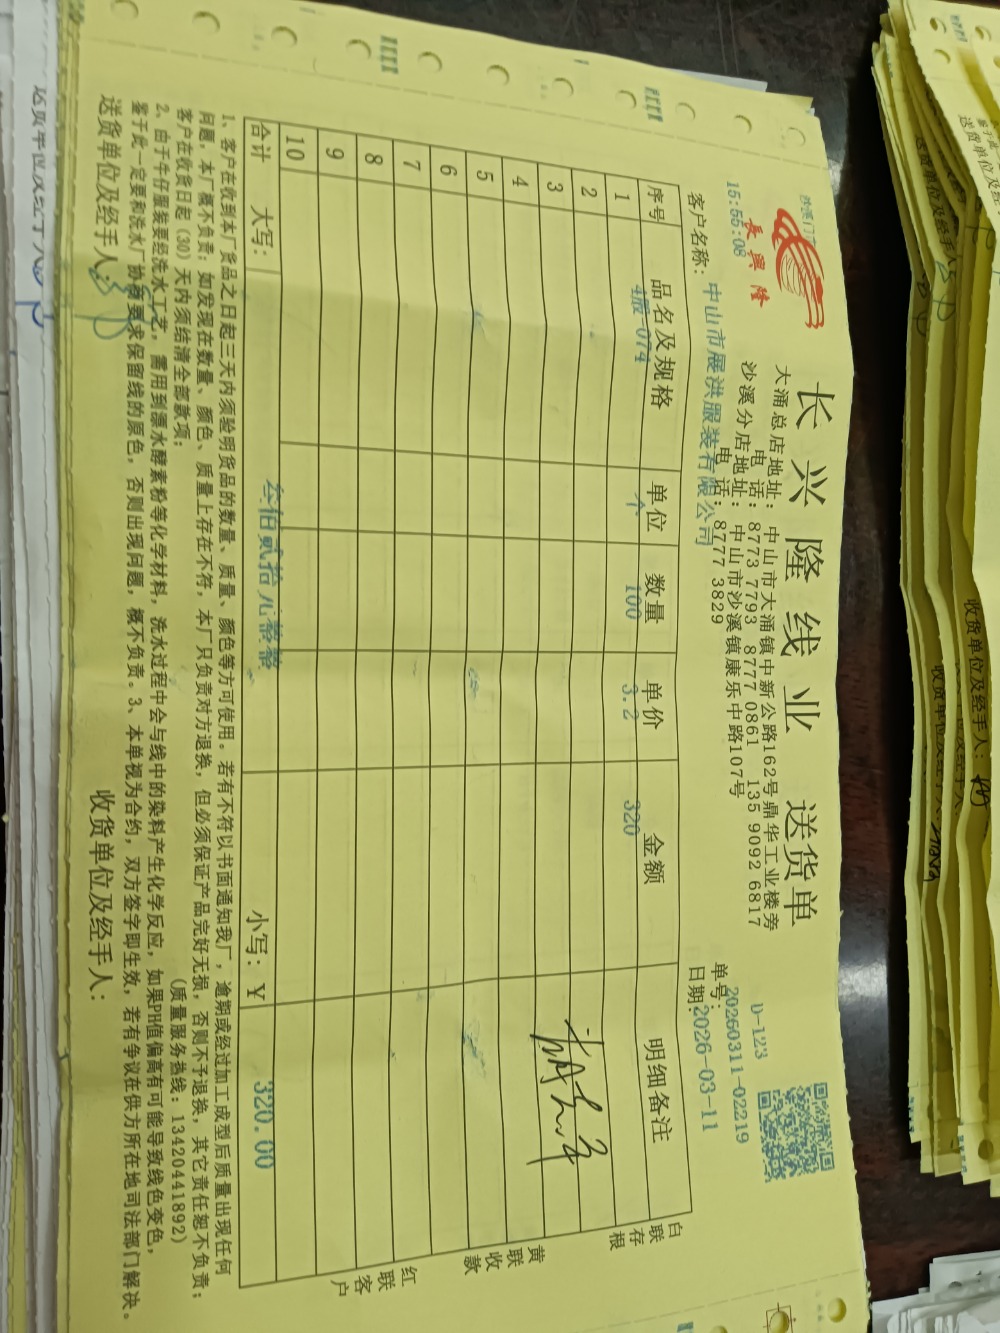 长兴隆线业 送货单
長興隆
15:55:08
大涌总店地址：中山市大涌镇中新公路162号鼎华工业楼旁
电 话：8773 7793 8777 0861 135 9092 6817
沙溪分店地址：中山市沙溪镇康乐中路107号
电 话：8777 3829
D-123
单号：20260311-02219
客户名称：中山市展洪服装有限公司
日期：2026-03-11
序号 品名及规格 单位 数量 单价 金额 明细备注
1 4股-074 个 100 3.2 320
2
3
4
5
6
7
8
9
10
合计 大写：叁佰贰拾元整 小写：￥ 320.00
白联存根
黄联收款
红联客户
1、客户在收到本厂货品之日起三天内须验明货品的数量、质量、颜色等方可使用。若有不符以书面通知我厂，逾期或经过加工成型后质量出现任何
问题，本厂概不负责；如发现在数量、颜色、质量上存在不符，本厂只负责对方退换，但必须保证产品完好无损，否则不予退换，其它责任恕不负责；
客户在收货日起（30）天内须结清全部款项；
（质量服务热线：13420441892）
2、由于牛仔服装要经洗水工艺，需用到漂水酵素粉等化学材料，洗水过程中会与线中的染料产生化学反应，如果PH值偏高有可能导致线色变色，
鉴于此一定要和洗水厂协商要求保留线的原色，否则出现问题，概不负责。3、本单视为合约，双方签字即生效，若有争议在供方所在地司法部门解决。
送货单位及经手人： 收货单位及经手人：
收货单位及经手人：